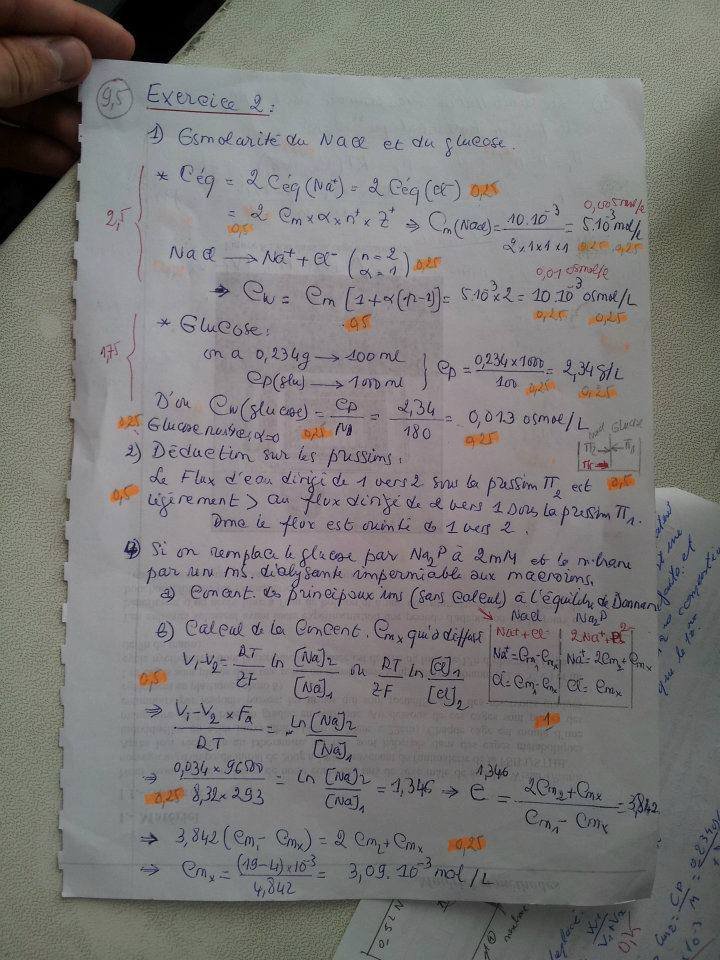 9,5 Exercice 2 :
1) Osmolarité du NaCl et du glucose.
2,5
* Céq = 2 Céq(Na⁺) = 2 Céq(Cl⁻) 0,25
0,005 mol/L
= 2 Cm × α × n⁺ × Z⁺ ⇒ Cm(NaCl) = 10.10⁻³ / 2×1×1×1 = 5.10⁻³ mol/L
0,5 0,25 0,25
NaCl → Na⁺ + Cl⁻ (n=2 α=1) 0,25
0,01 osmol/L
⇒ Cw = Cm [1+α(n-1)] = 5.10⁻³ × 2 = 10.10⁻³ osmol/L
0,5 0,25 0,25
1,75
* Glucose :
on a 0,234g → 100 ml
Cp(glu) → 1000 ml } Cp = 0,234×1000 / 100 = 2,34 g/L
0,25 0,25
D'où Cw(glucose) = Cp / M = 2,34 / 180 = 0,013 osmol/L
0,25 Glucose α=0 0,25 0,25
NaCl Glucose
π2 π1
2) Déduction sur les pressions :
Le Flux d'eau dirigé de 1 vers 2 sous la pression π₂ est 0,5
0,5 légèrement > au flux dirigé de 2 vers 1 sous la pression π₁.
Donc le flux est orienté de 1 vers 2.
4) Si on remplace le glucose par Na₂P à 2mM et la mbrane
par une mb. dialysante imperméable aux macroions.
a) Concent. des principaux ions (sans calcul) à l'équilibre de Donnan
NaCl Na₂P
Na⁺ + Cl⁻ 2Na⁺ + P²⁻
Na⁺ = Cm₁ - Cmx Na⁺ = 2Cm₂ + Cmx
Cl⁻ = Cm₁ - Cmx Cl⁻ = Cmx
1
b) Calcul de la Concent. Cmx qui a diffusé
0,5 V₁-V₂ = RT/ZF ln [Na]₂/[Na]₁ ou RT/ZF ln [Cl]₁/[Cl]₂
⇒ V₁-V₂ × Fa / RT = ln [Na]₂/[Na]₁
⇒ 0,034 × 96500 / 8,32 × 293 = ln [Na]₂/[Na]₁ = 1,346 ⇒ e^1,346 = 2Cm₂ + Cmx / Cm₁ - Cmx = 3,842
0,25
⇒ 3,842 (Cm₁ - Cmx) = 2 Cm₂ + Cmx 0,25
⇒ Cmx = (19-4)×10⁻³ / 4,842 = 3,09.10⁻³ mol/L